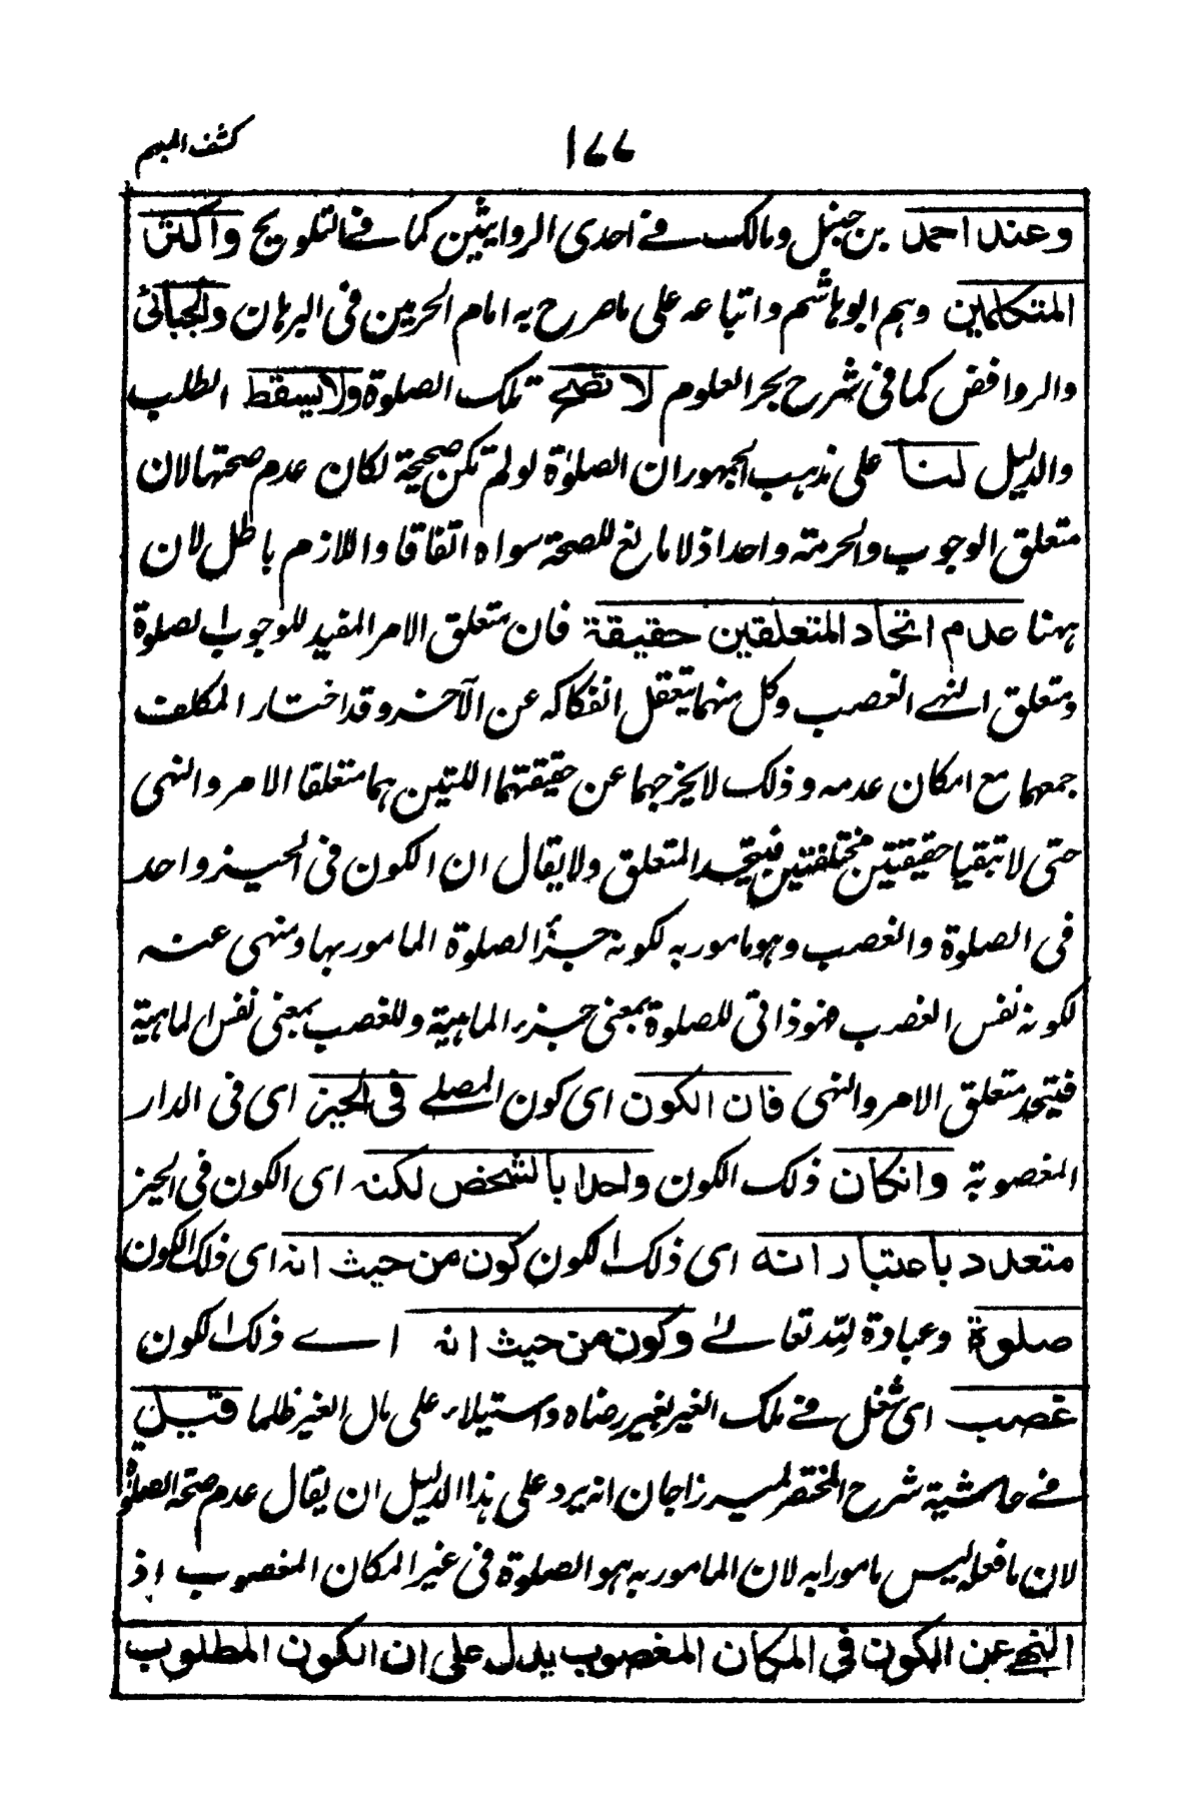 كشف المبهم
١٧٧
وعند احمد بن حنبل ومالك فے احدى الروايتين كما فے التلويح واكثر
المتكلمين وهم ابو هاشم واتباعه على ما صرح به امام الحرمين فى البرهان والجبائى
والروافض كما فى شرح بحر العلوم لا تصح تلك الصلوة ولا يسقط الطلب
والدليل لنا على مذهب الجمهور ان الصلوٰة لو لم تكن صحيحة لكان عدم صحتها لان
متعلق الوجوب والحرمة واحدا اذ لا مانع للصحة سواه اتفاقا واللازم باطل لان
ههنا عدم اتحاد المتعلقين حقيقة فان متعلق الامر المفيد للوجوب الصلوة
ومتعلق النهے الغصب وكل منهما يتعقل انفكاكه عن الآخر وقد اختار المكلف
جمعهما مع امكان عدمه وذلك لا يخرجهما عن حقيقتهما اللتين هما متعلقا الامر والنهى
حتى لا تبقيا حقيقتين مختلفتين فيتحد المتعلق ولا يقال ان الكون فى الحيز واحد
فى الصلوة والغصب وهو مامور به لكونه جزأ الصلوة المامور بها ومنهى عنه
لكونه نفس الغصب فهو ذاتى للصلوة بمعنى جزء الماهية وللغصب بمعنى نفس الماهية
فيتحد متعلق الامر والنهى فان الكون اى كون المصلے فى الحيز اى فى الدار
المغصوبة وانكان ذلك الكون واحدا بالشخص لكنه اى الكون فى الحيز
متعدد باعتبار انه اى ذلك الكون كون من حيث انه اى ذلك الكون
صلوة وعبادة لله تعالىٰ وكون من حيث انه اے ذلك الكون
غصب اى شغل فے ملك الغير بغير رضاه واستيلاء على مال الغير ظلما قيل
فے حاشية شرح المختصر لميرزاجان انه يرد على هذا الدليل ان يقال عدم صحة الصلوٰة
لان ما فعله ليس مامورا به لان المامور به هو الصلوة فى غير المكان المغصوب اذ
النهے عن الكون فى المكان المغصوب يدل على ان الكون المطلوب